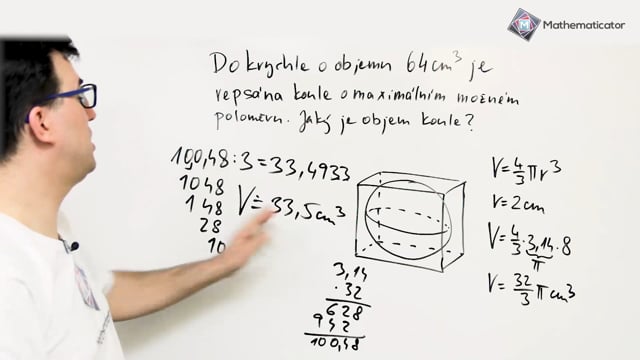 Mathematicator
Do krychle o objemu 64cm³ je
vepsána koule o maximálním možném
poloměru. Jaký je objem koule?
100,48:3=33,4933
1048
148
28
10
V≐33,5cm³
3,14
·32
628
942
100,48
V=4/3πr³
r=2cm
V=4/3·3,14·8
π
V=32/3πcm³